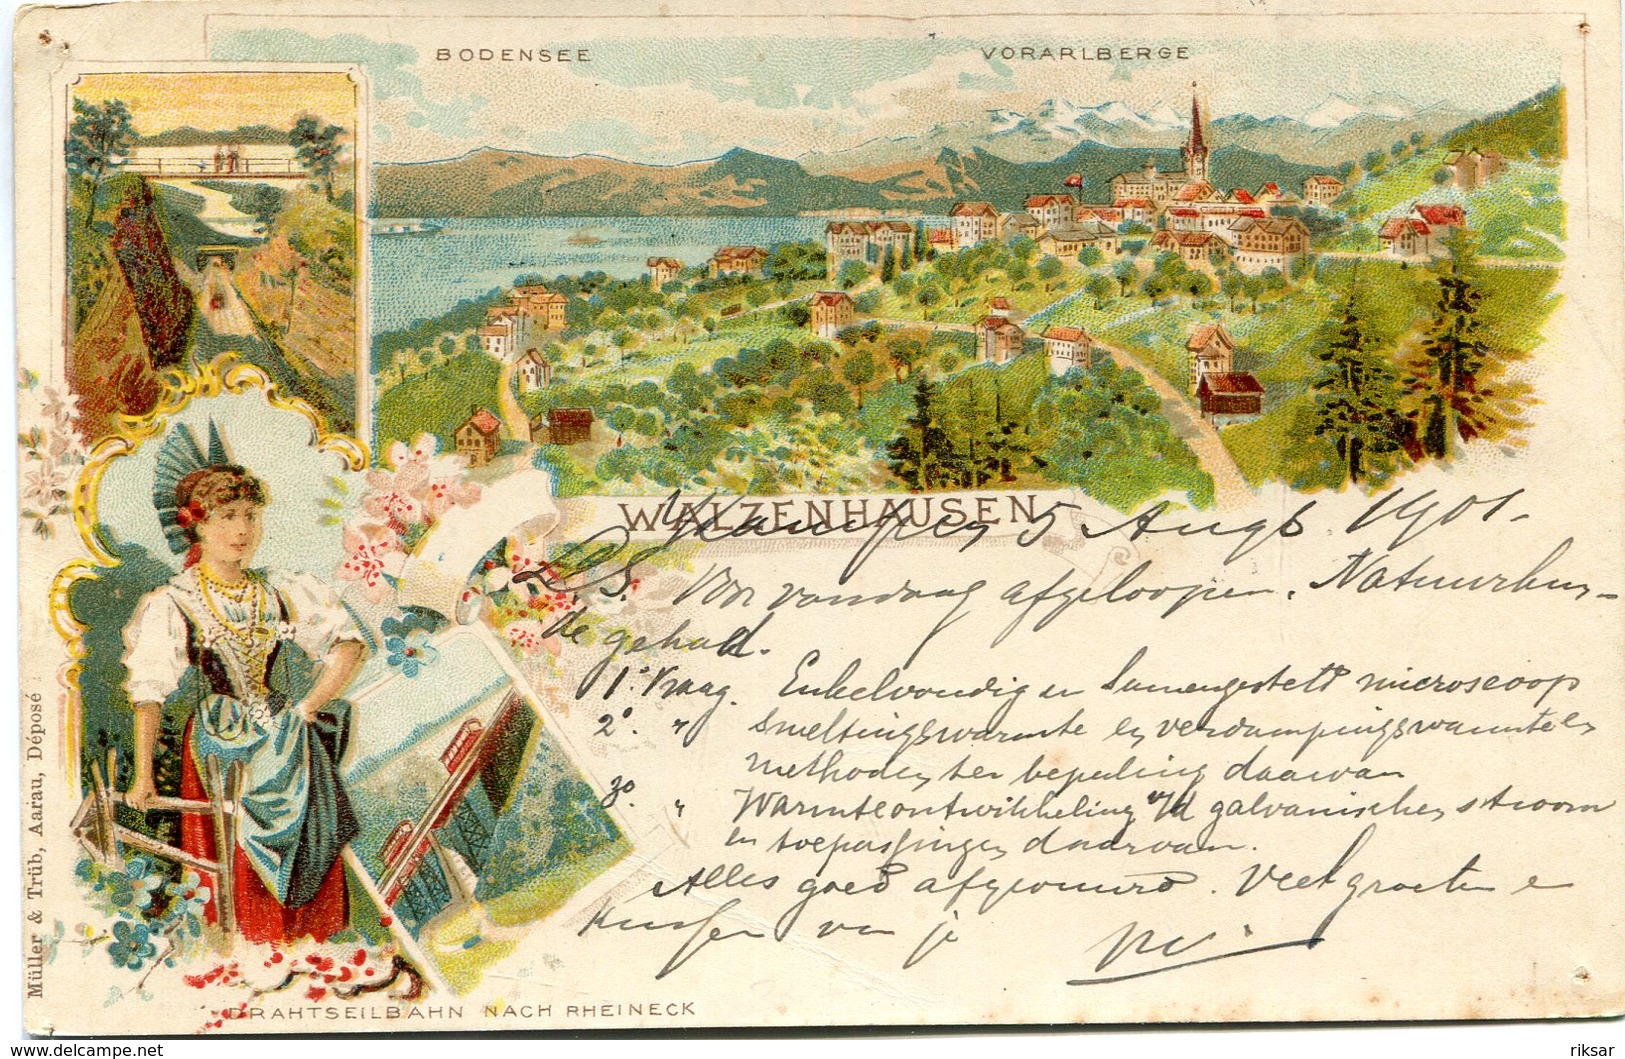 BODENSEE
VORARLBERGE
WALZENHAUSEN
5 Augs 1901.
L. S. Voor vandaag afgeloopen. Natuurkun-
de gehad.
1e. Vraag. Enkelvoudig en Samengesteld microscoop
2o. " Smeltingswarmte en verdampingswarmte en
methoden ter bepaling daarvan
3o. " Warmteontwikkeling v/d galvanischen stroom
en toepassingen daarvan.
Alles goed afgeloopen. Veel groeten e
kussen van je
DRAHTSEILBAHN NACH RHEINECK
Müller & Trüb, Aarau, Déposé
delcampe.net
riksar